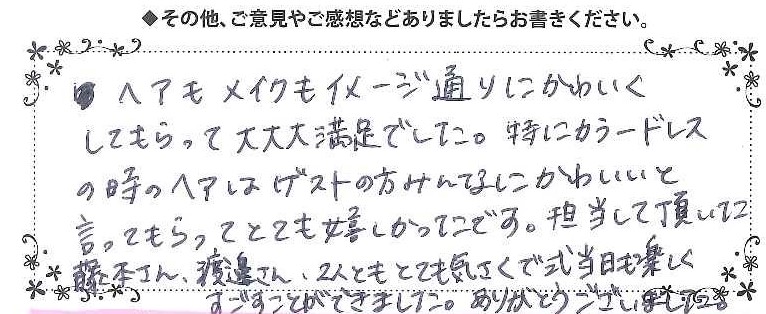 ◆その他、ご意見やご感想などありましたらお書きください。
ヘアもメイクもイメージ通りにかわいく
してもらって大大大満足でした。特にカラードレス
の時のヘアはゲストの方みんなにかわいいと
言ってもらってとても嬉しかったです。担当して頂いた
藤本さん、渡邉さん、2人ともとても気さくで式当日も楽しく
すごすことができました。ありがとうございました。